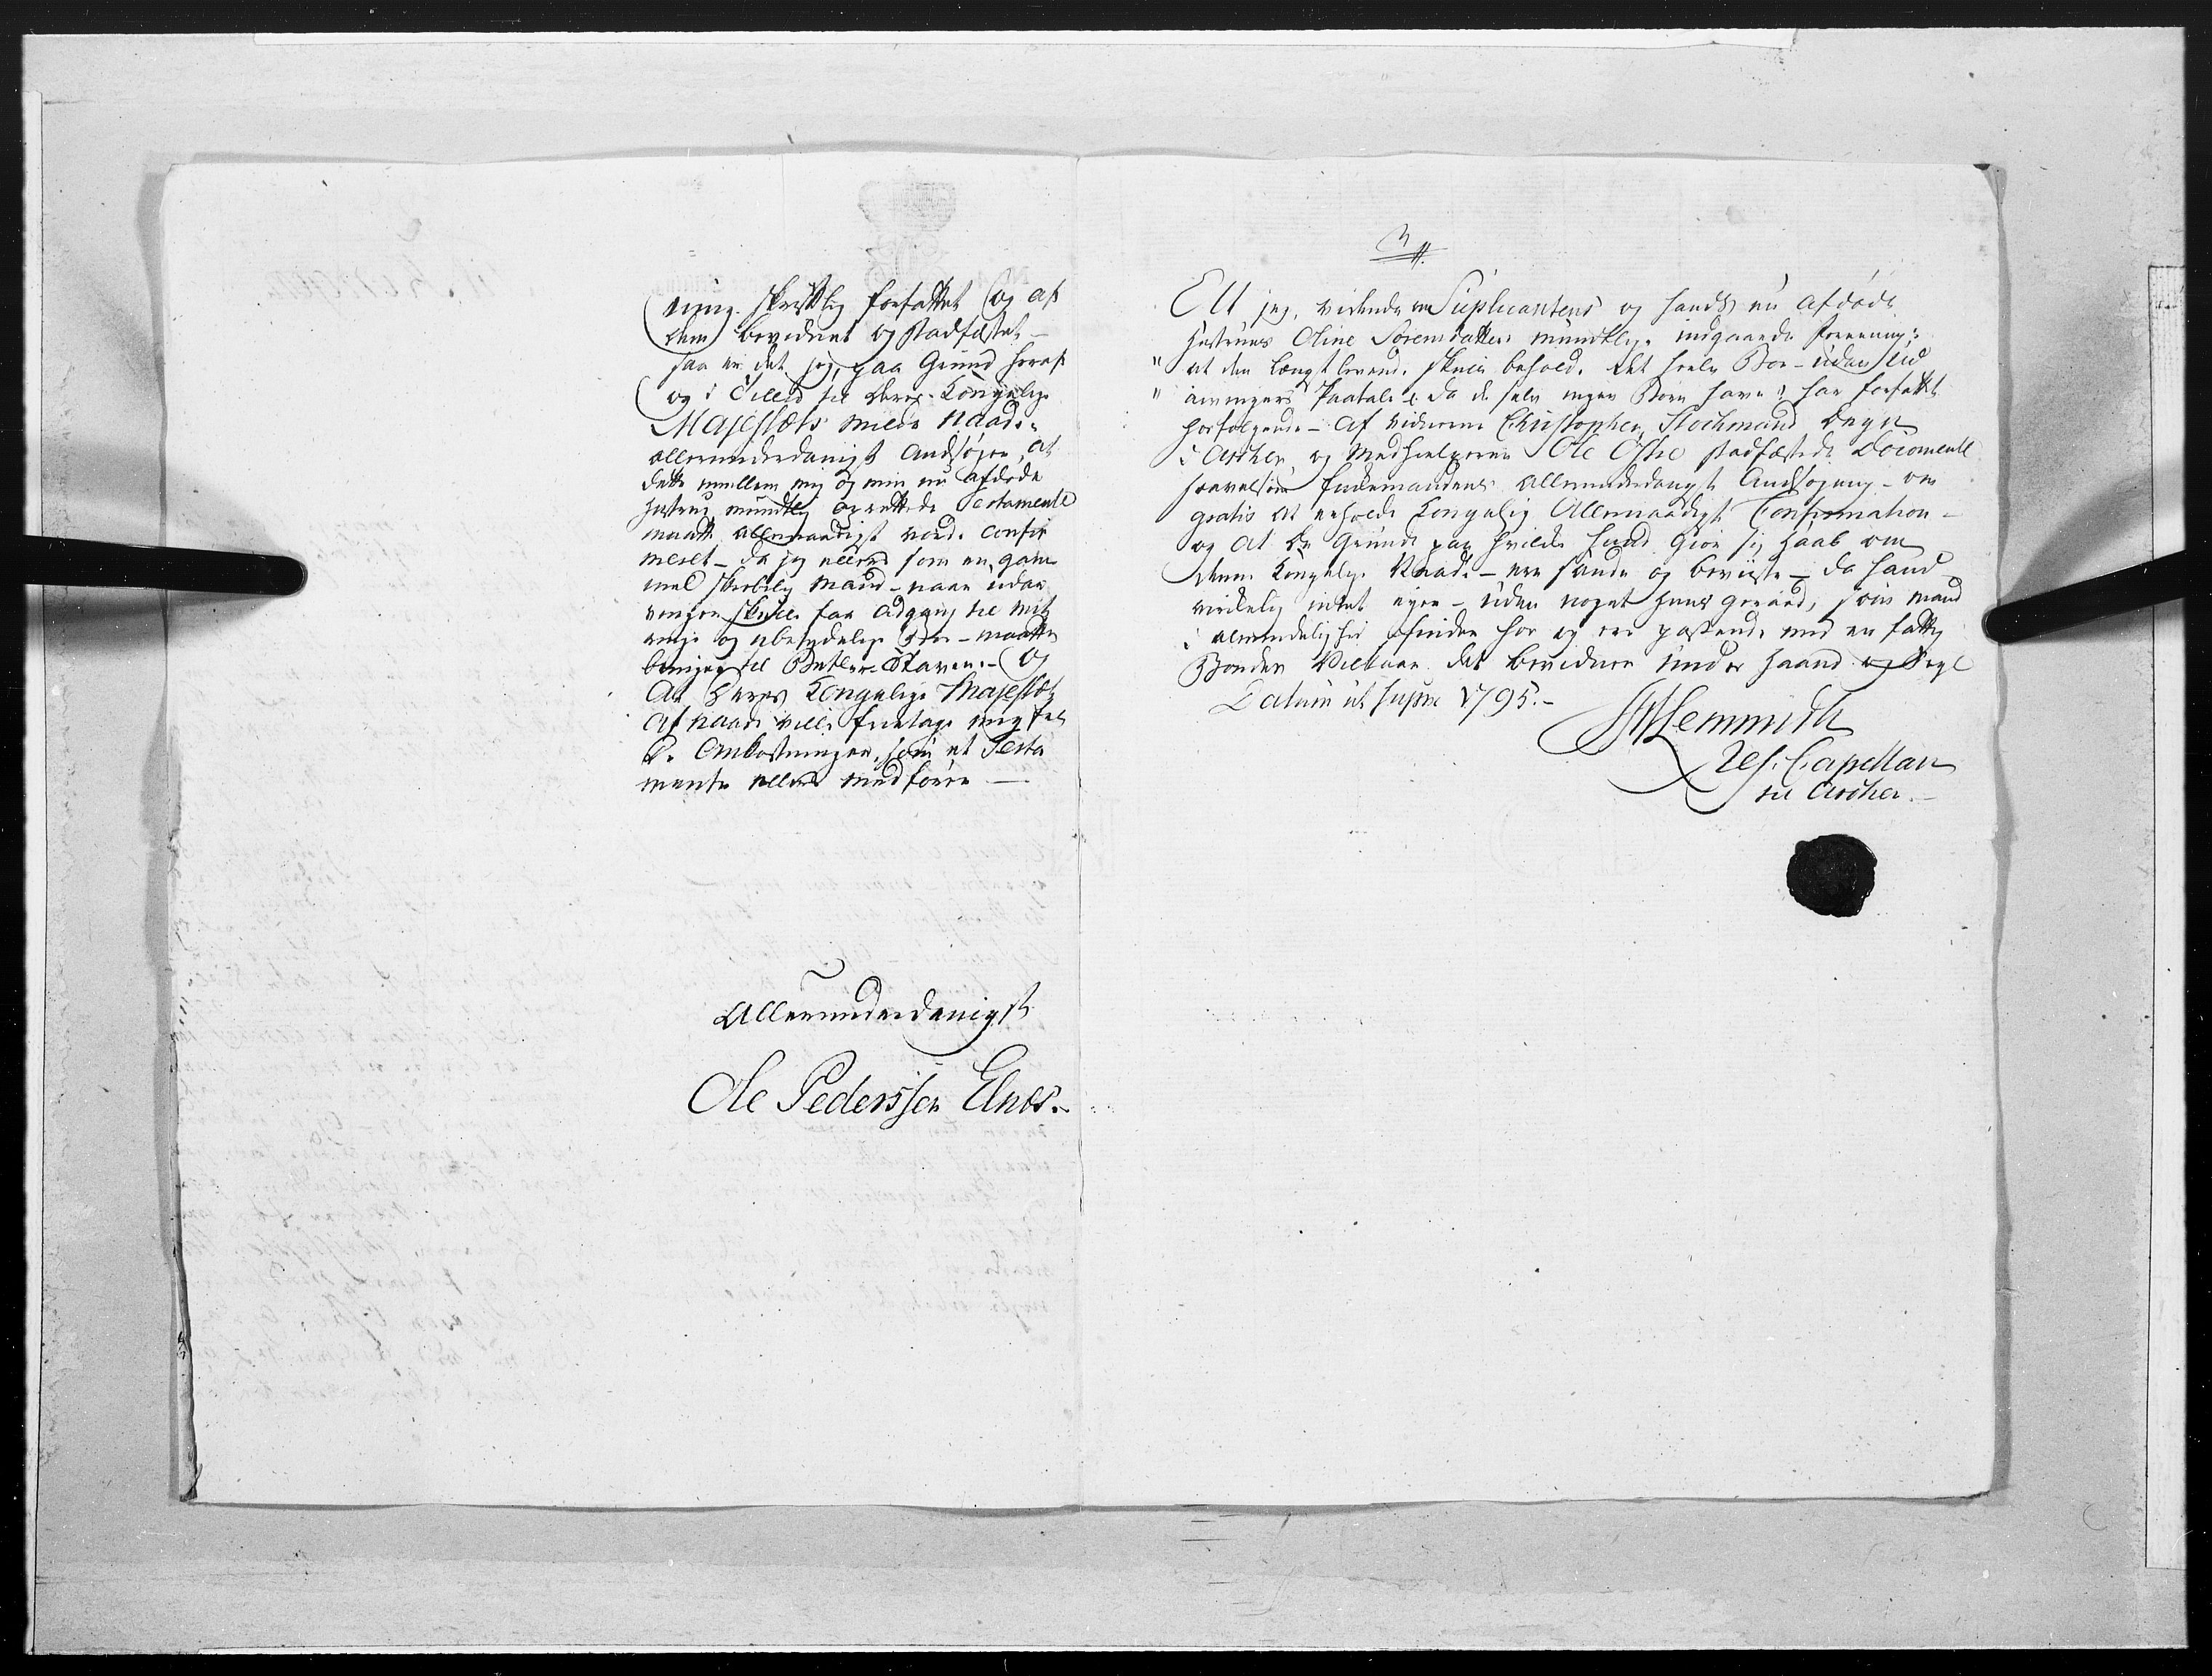 ning. skriftlig forfattet og af
dem bevidnet og stadfæstet –
saa er det jeg, paa Grund heraf
og i Tillid til Deres Kongelige
Majestæts milde Naade
allerunderdanigst Andsøger, at
dette imellem mig og min nu afdøde
Hustrue mundtlig oprettede Testamente
maatte allernaadigst vorde confir
meret – da jeg ellers som en gam
mel skrøbelig Mand – naar udar
vinger skulle faa Adgang til mit
ringe og ubetydelige Boe – maatte
bringes til Betler-Staven – Og
At Deres Kongelige Majestæt
af Naade ville fritage mig for
de Omkostninger, som et Testa
mente ellers medfører –
Allerunderdanigst
Ole Pederssen Elnæs.
3
At jeg, vidende om Suplicantens og hands nu afdøde
Hustrues Oline Sørensdatters mundtlige indgaaede Foreening:
" at den Længstlevende skulle beholde det heele Boe – uden Ud
" arvingers Paatale – da de selv ingen Børn have: har forfattet
hosfølgende – af Vidnerne Christopher Stochmand Degn
i Askher, og Medhielperen Ole Østre stadfæstede Document
saavelsom Enkemandens allerunderdanigst Ansøgning – om
gratis at erholde Kongelig Allernaadigst Confirmation –
og at de Grunde paa hvilke hand giør sig Haab om
denne Kongelige Naade – ere sande og beviiste – da hand
virkelig intet eyer – uden noget huus geraad, som mand
i almindelighed finder hos og er passende med en fattig
Bondes Vilkaar. det bevidner under Haand og Segl
Datum ut supra 1795. –
Lemmich
Res: Capellan
til Askher. –